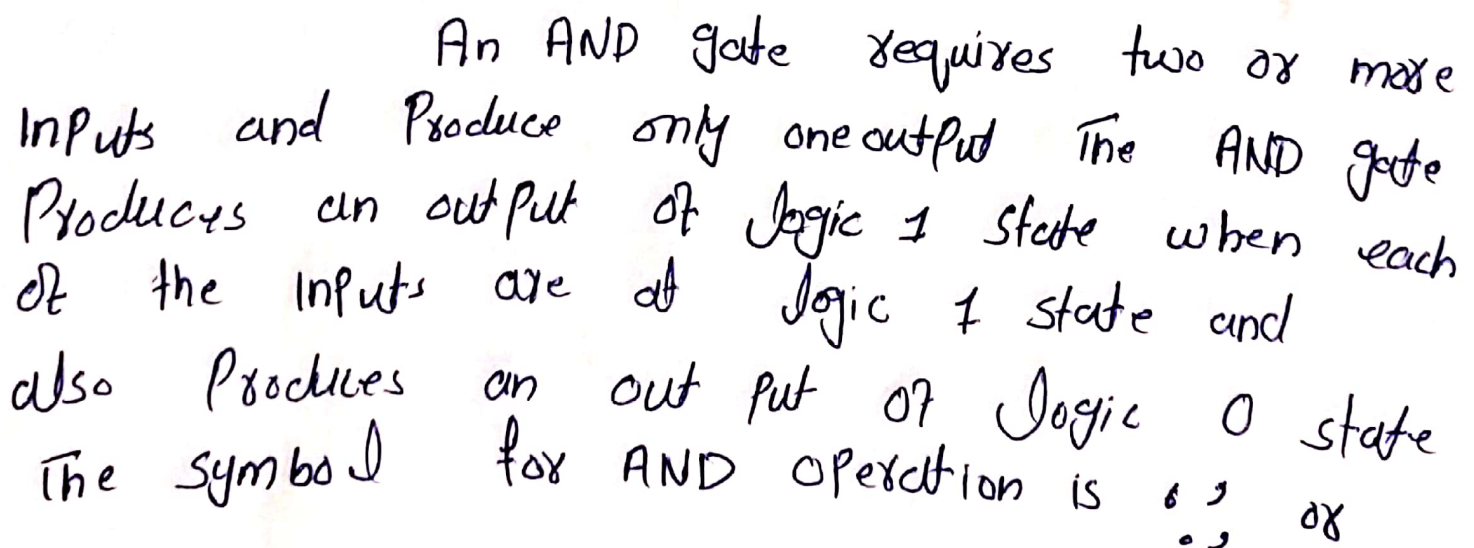 An AND gate requires two or more
Inputs and Produce only one output The AND gate
Produces an out put of logic 1 state when each
of the Inputs are at logic 1 state and
also Produces an out put of logic 0 state
The symbol for AND operation is ; or